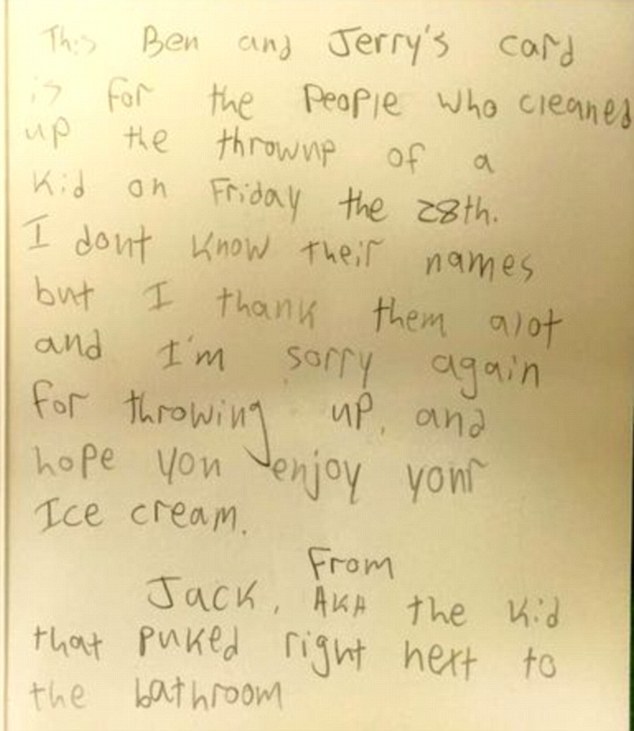 This Ben and Jerry's card
is for the People who cleaned
up the thrownp of a
Kid on Friday the 28th.
I dont know their names
but I thank them alot
and I'm sorry again
for throwing up, and
hope you enjoy your
Ice cream.
From
Jack, AKA the kid
that puked right next to
the bathroom